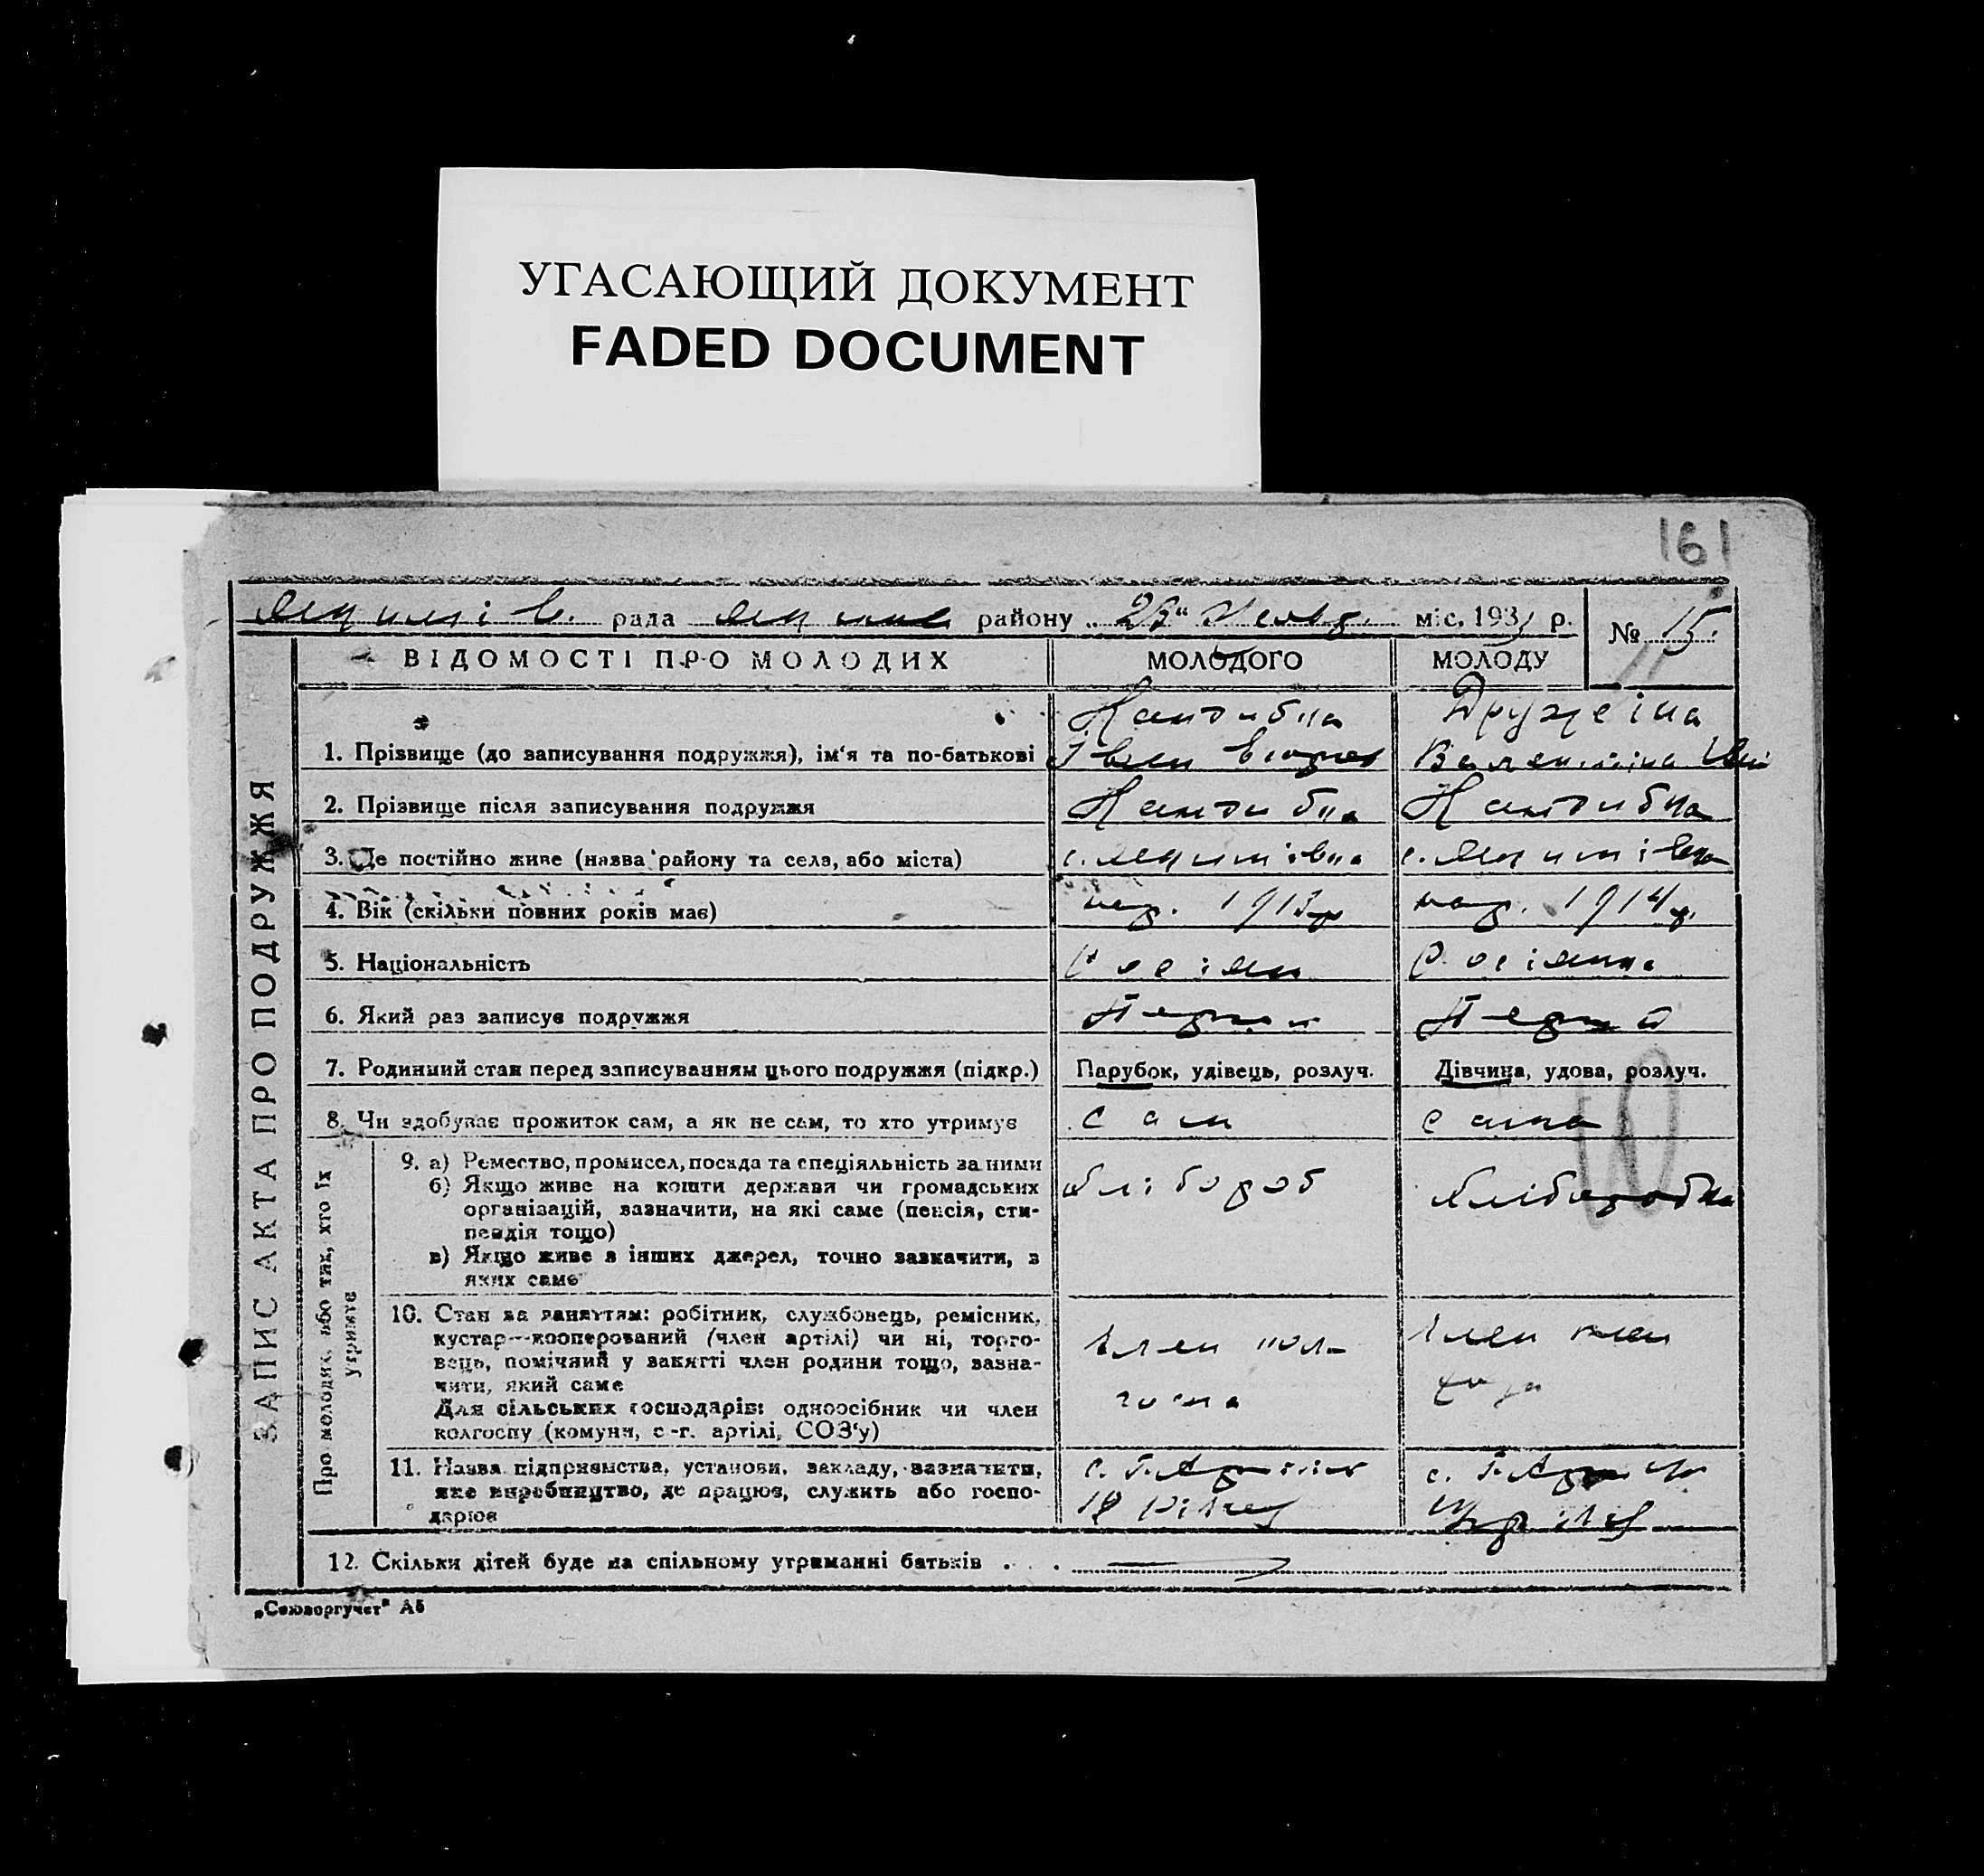 УГАСАЮЩИЙ ДОКУМЕНТ
FADED DOCUMENT
161
рада району 23 міс. 193 р. № 15.
ЗАПИС АКТА ПРО ПОДРУЖЖЯ
ВІДОМОСТІ ПРО МОЛОДИХ МОЛОДОГО МОЛОДУ
Дружеіна
1. Прізвище (до записування подружжя), ім'я та по-батькові Іван Валентіна
2. Прізвище після записування подружжя
3. Де постійно живе (назва району та села, або міста) с. с.
4. Вік (скільки повних років має) нар. 1913р нар. 1914р.
5. Національність Росіян Росіянка
6. Який раз записує подружжя Перший Перша
7. Родинний стан перед записуванням цього подружжя (підкр.) Парубок, удівець, розлуч. Дівчина, удова, розлуч.
8. Чи здобуває прожиток сам, а як не сам, то хто утримує сам сама
Про молодих, або тих, хто їх утримує
9. а) Ремество, промисел, посада та спеціяльність за ними Хлібороб Хліборобка
б) Якщо живе на кошти держави чи громадських
організацій, зазначити, на які саме (пенсія, сти-
пендія тощо)
в) Якщо живе з інших джерел, точно зазначити, з
яких саме
10. Стан за заняттям: робітник, службовець, ремісник,
кустар—кооперований (член артілі) чи ні, торго- Член кол- Член
вець, помічний у занятті член родини тощо, зазна-
чити, який саме госпа
Для сільських господарів: одноосібник чи член
колгоспу (комуни, с.-г. артілі, СОЗ'у)
11. Назва підприємства, установи, закладу, зазначити, с. г. с. г.
яке виробництво, де працює, служить або госпо-
дарює
12. Скільки дітей буде на спільному утриманні батьків . . .
„Союзоргучет" А5